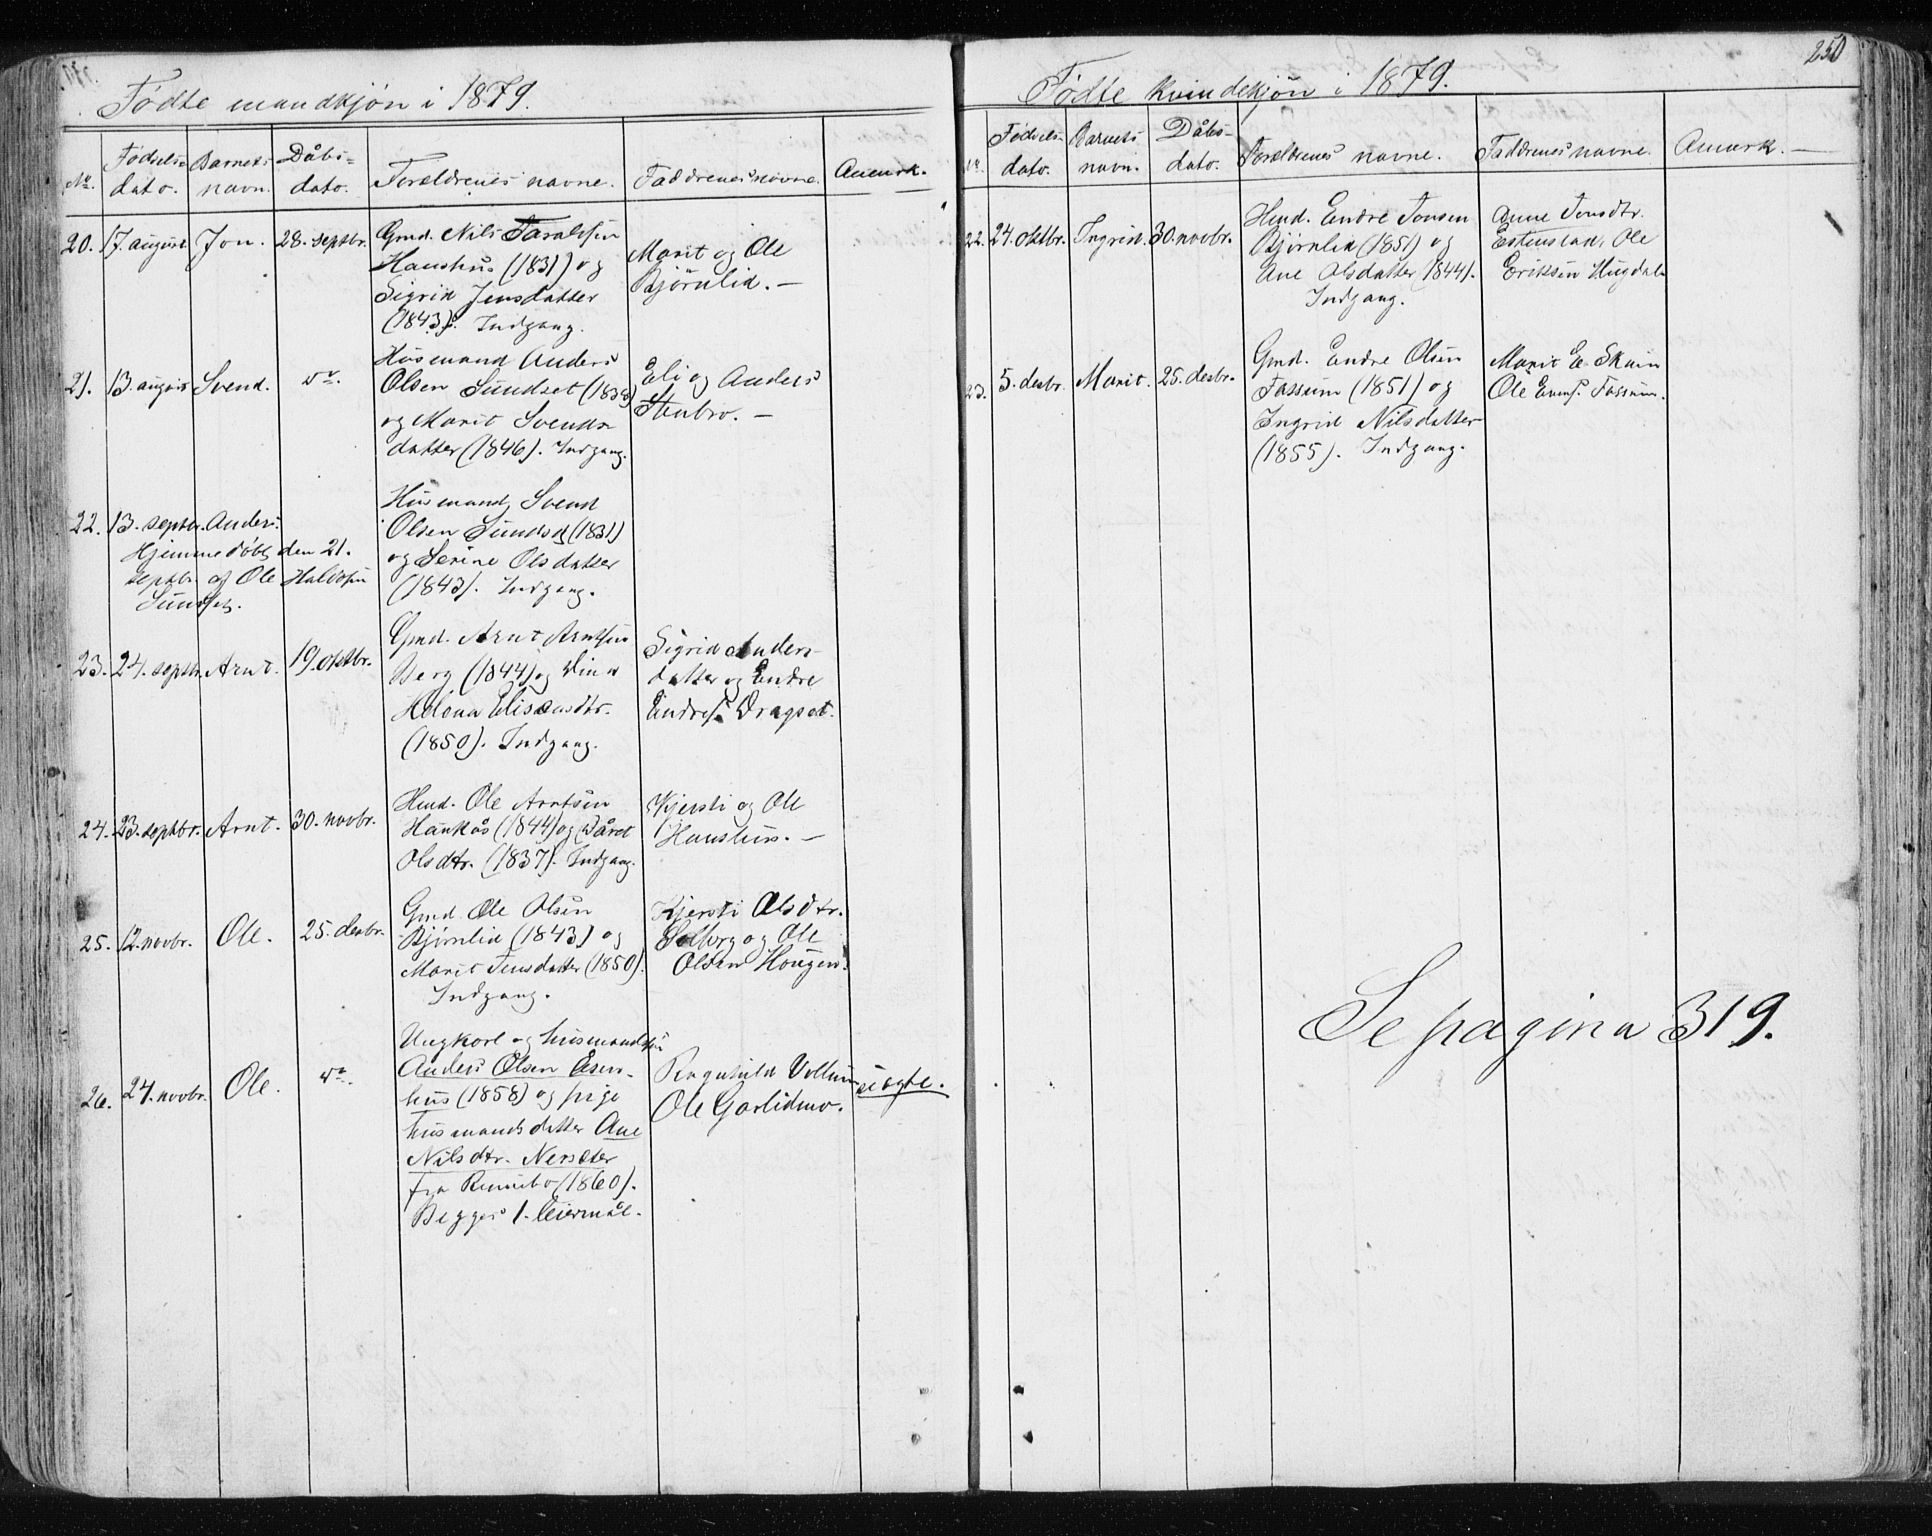 Fødte mandkjön i 1879.
No. Fødsels= dato. Barnets navn. Dåbs= dato. Foreldrenes navne. Faddrenes navne. Anmrk.
20. 17. august Jon. 28. septbr.
Gmd. Nils Taraldsen
Haushus (1831) og
Sigrid Jensdatter
(1843). Indgang.
Marit og Ole
Bjørnlid. —
21. 13. august Svend. do.
Husmand Anders
Olsen Sundset (1838)
og Marit Svends
datter (1846). Indgang.
Eli og Anders
Stenbro. —
22. 13. septbr. Anders.
Hjemmedøbt den 21.
septbr. af Ole Haldosen
Sundset.
Husmand Svend
Olsen Sundset (1831)
og Serine Olsdatter
(1843). Indgang.
23. 24. septbr. Arnt. 19. oktbr.
Gmd. Arnt Arntsen
Berg (1844) og Dina
Helena Eliseusdtr.
(1850). Indgang.
Sigrid Anders-
datter og Endre
Endres. Dragset.
24. 23. septbr. Arnt. 30. novbr.
Hmd. Ole Arntsen
Haukås (1844) og Dåret
Olsdtr. (1837). Indgang.
Kjersti og Ole
Haushus. —
25. 12. novbr. Ole. 25. desbr.
Gmd. Ole Olsen
Bjørnlid (1843) og
Marit Jensdatter (1850).
Indgang.
Kjersti Olsdtr.
Solberg og Ole
Olsen Hougen.
26. 24. novbr. Ole. do.
Ungkarl og husmandssøn
Anders Olsen Esen-
hus (1858) og pige
husmandsdatter Ane
Nilsdtr. Nersæter
fra Rennebo (1860).
Begges 1. leiermål.
Ragnhild Vollum
Ole Garlidmo.
uegte.
250
Fødte kvindekjön i 1879.
No. Fødsels- dato. Barnets navn. Dåbs- dato. Foreldrenes navne. Faddrenes navne. Anmrk. —
22. 24. oktbr. Ingrid. 30. novbr.
Hmd. Endre Jonsen
Bjørnlid (1851) og
Ane Olsdatter (1844).
Indgang.
Anne Jonsdtr.
Estenstad, Ole
Eriksen Hugdal
23. 5. desbr. Marit. 25. desbr.
Gmd. Endre Olsen
Fossum (1851) og
Ingrid Nilsdatter
(1855). Indgang.
Marit E. Skam
Ole Evens. Fossum.
Se pagina 319.